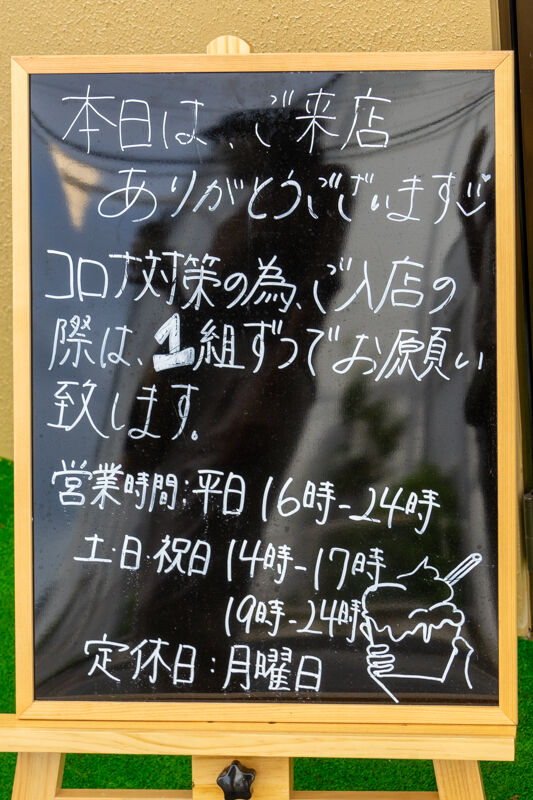 本日は、ご来店
ありがとうございます
コロナ対策の為、ご入店の
際は、1組ずつでお願い
致します。
営業時間:平日16時-24時
土・日・祝日14時-17時
19時-24時
定休日:月曜日